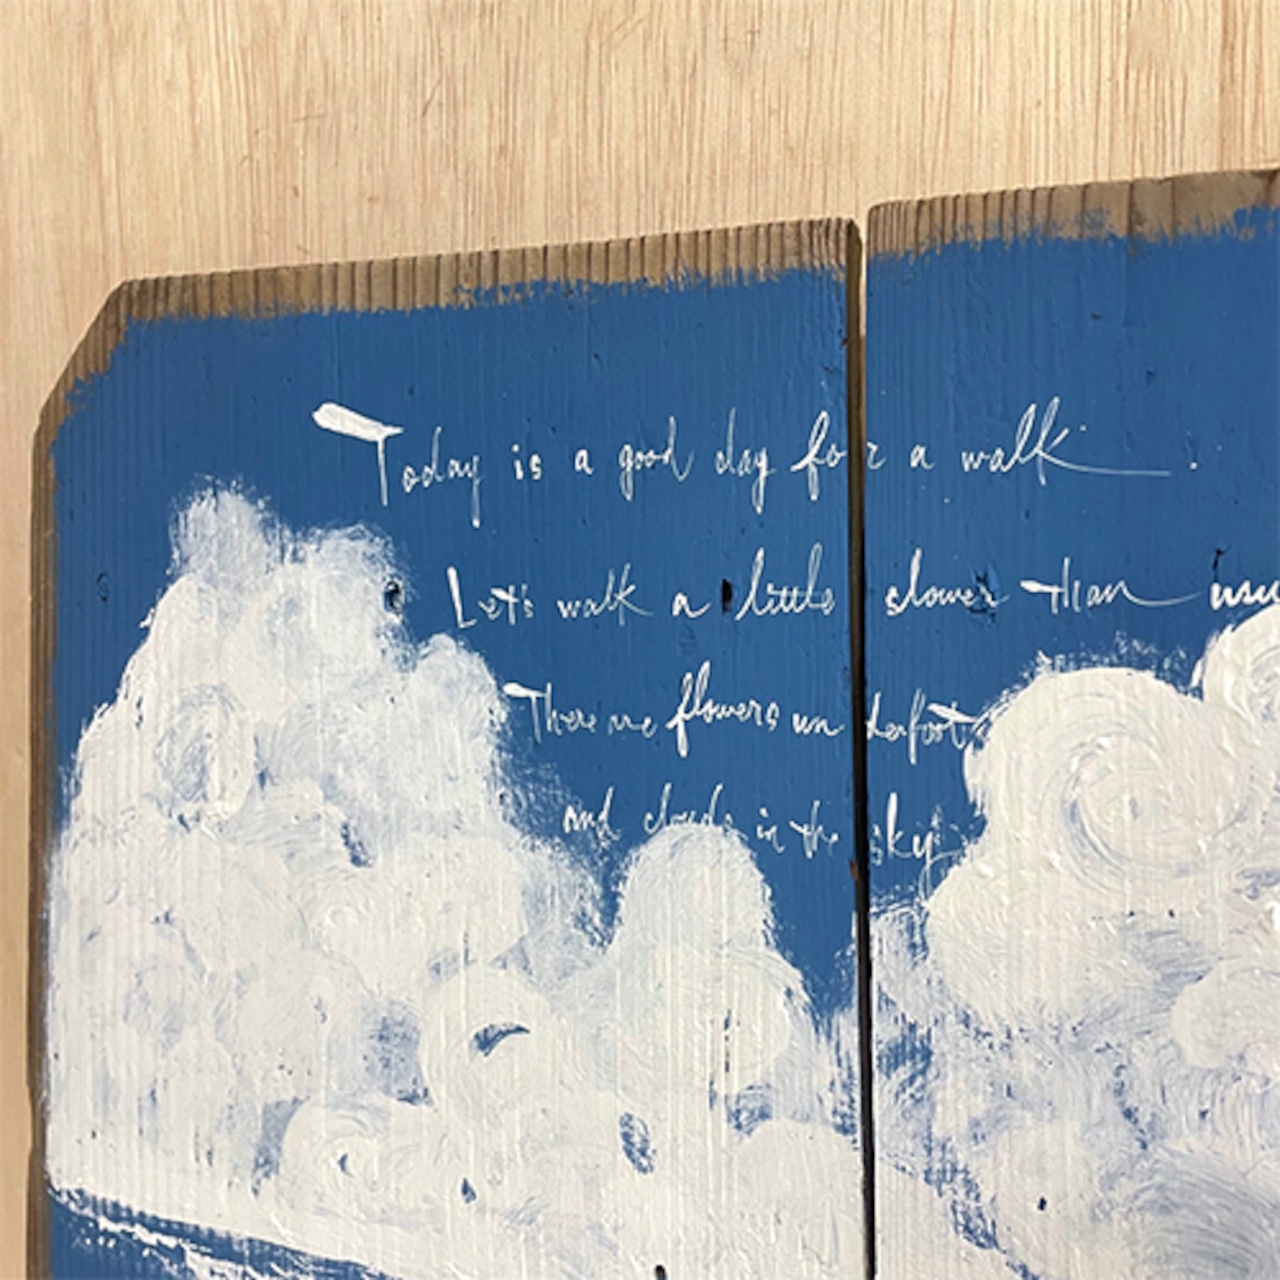 Today is a good day for a walk.
Let's walk a little slower than usu
There are flowers underfoot
and clouds in the sky